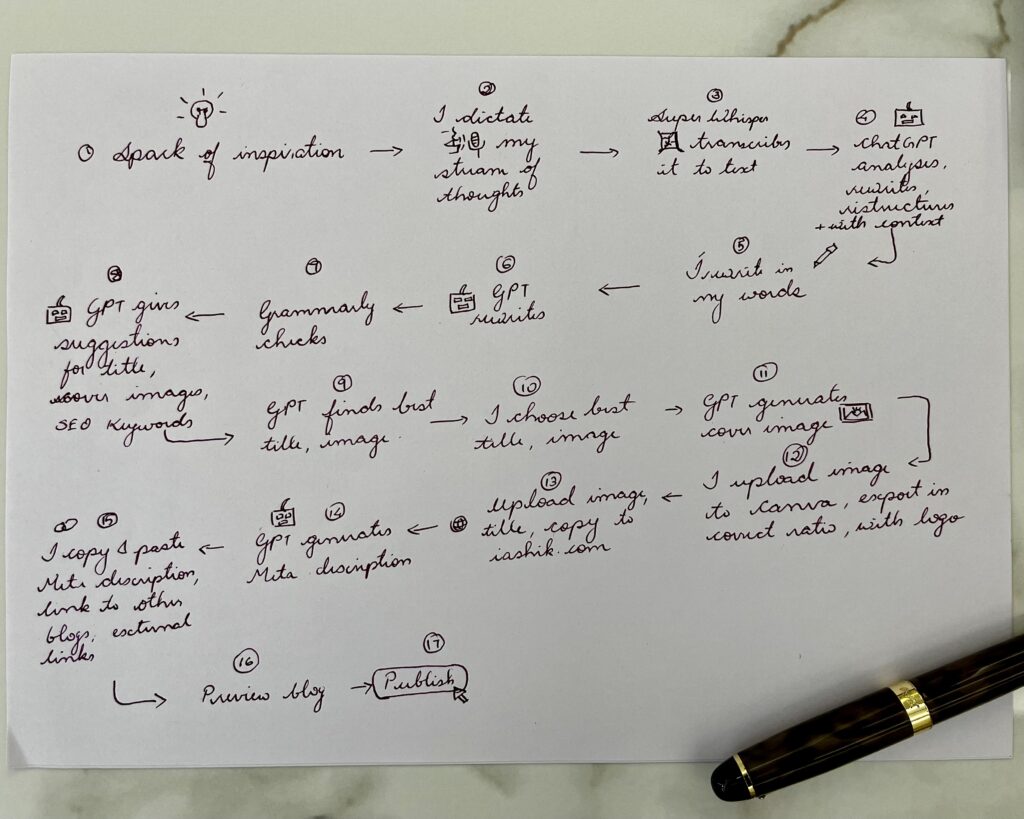 ① Spark of inspiration
②
I dictate
my
stream of
thoughts
③
Super Whisper
transcribes
it to text
④
ChatGPT
analyses,
rewrites,
restructures
+ with context
⑤
I rewrite in
my words
⑥
GPT
rewrites
⑦
Grammarly
checks
⑧
GPT gives
suggestions
for title,
cover images,
SEO Keywords
⑨
GPT finds best
title, image.
⑩
I choose best
title, image
⑪
GPT generates
cover image
⑫
I upload image
to Canva, export in
correct ratio, with logo
⑬
Upload image,
title, copy to
iashik.com
⑭
GPT generates
Meta description
⑮
I copy & paste
Meta description,
link to other
blogs, external
links
⑯
Preview blog
⑰
Publish